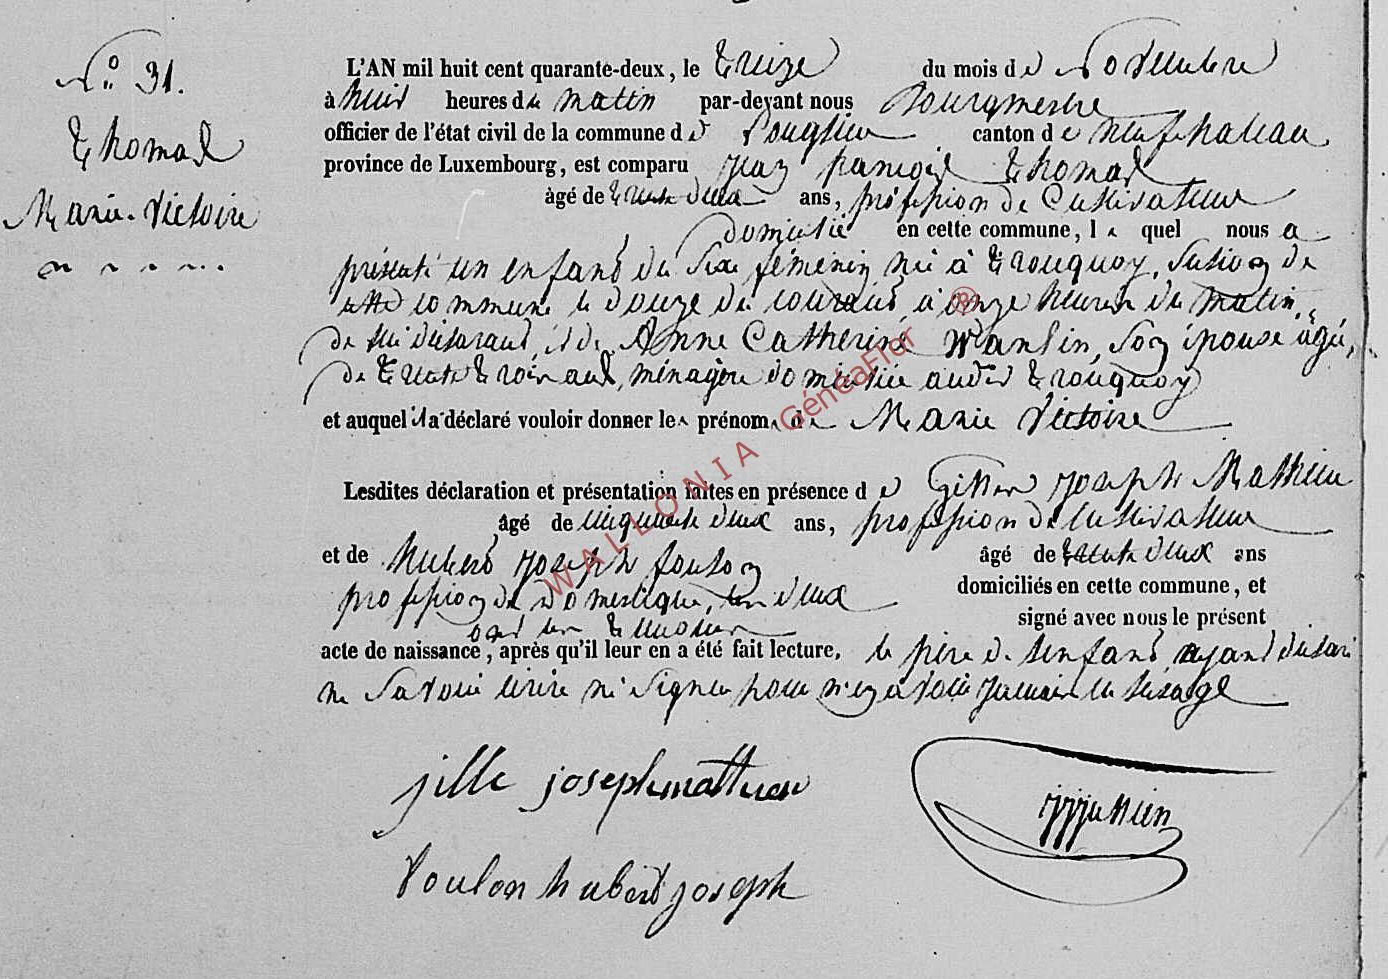 N.° 31.
Thomas
Marie-Victoire
L'AN mil huit cent quarante-deux, le treize du mois de Novembre
à huit heures du matin par-devant nous Bourgmestre
officier de l'état civil de la commune de canton de neufchateau
province de Luxembourg, est comparu jean francois Thomas
âgé de trente deux ans, profession de Cultivateur
domicilié en cette commune, le quel nous a
présenté un enfant du sexe féminin né à trouquoy, section de
cette commune le douze du courant, à onze heures du matin,
de lui déclarant, et de Anne Catherine Wanlin, son épouse agée,
de trente trois ans, ménagère domiciliée audit trouquoy
et auquel il a déclaré vouloir donner les prénoms de Marie Victoire
Lesdites déclaration et présentation faites en présence de joseph Mathieu
âgé de cinquante deux ans, profession de Cultivateur
et de hubert joseph foulon âgé de trente deux ans
profession de domestique, tous deux domiciliés en cette commune, et
ont les temoins signé avec nous le présent
acte de naissance, après qu'il leur en a été fait lecture, le père de lenfant ayant déclaré
ne savoir écrire ni signer pour n'en avoir jamais eu lusage
jille joseph mathieu
foulon hubert joseph
WALLONIA GénéaFlor ®